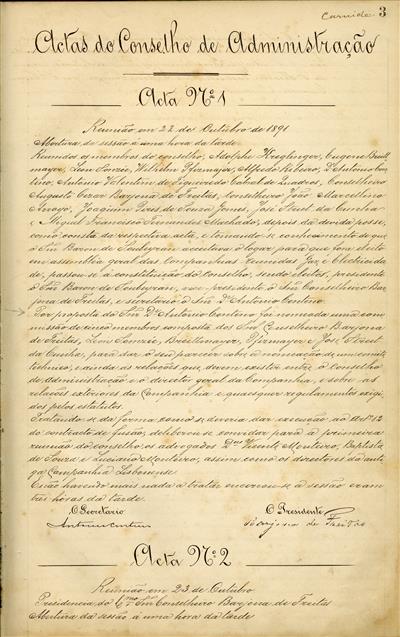 Carnide 3
Actas do Conselho de Administração
Acta Nº 1
Reunião em 22 de Outubro de 1891
Abertura de sessão á uma hora da tarde
Reunidos os membros do conselho, Adolphe Kreglinger, Eugene
mayer, Leon Somzée, Wilhelm Pfizmayer, Alfredo Ribeiro, Dr Antonio Cen
teno, Antonio Valentim de Figueiredo Cabral de Quadros, Conselheiro
Augusto Cesar Barjona de Freitas, Conselheiro João Marcellino
Arroyo, Joaquim Pires de Souza Gomes, José Street da Cunha
e Miguel Francisco Fernandes Machado, depois da devida posse,
como consta da respectiva acta, e tomando-se conhecimento de que
o Snr Baron de Soubeyran acceitava o logar para que fôra eleito
em assembléa geral das Companhias Reunidas Gaz e Electricida
de, passou-se á constituição do Conselho, sendo eleitos, presidente
o Snr Baron de Soubeyran, vice-presidente o Snr Conselheiro Bar
jona de Freitas, e secretario o Snr Dr Antonio Centeno
Por proposta do Snr Dr Antonio Centeno foi nomeada uma com
missão de cinco membros composta dos Snrs Conselheiro Barjona
de Freitas, Leon Somzée, Pfizmayer e José Street
da Cunha, para dar o seu parecer sobre a nomeação de um comité
technico, e ainda as relações que devem existir entre o Conselho
de Administração e o director geral da Companhia, e sobre as
relações exteriores da Companhia e quaesquer regulamentos exigi
dos pelos estatutos.
Tratando-se da forma como se deveria dar execução ao Artº 12
do contracto de fusão, deliberou-se convidar para a primeira
reunião do conselho os advogados Drs Vicente Monteiro, Baptista
de Souza e Monteiro, assim como os directores da anti
ga Companhia Lisbonense
E não havendo mais nada a tratar encerrou-se a sessão eram
tres horas da tarde.
O Secretario O Presidente
Antonio Centeno Barjona de Freitas
Acta Nº 2
Reunião em 23 de Outubro
Presidencia do Exmo Snr Conselheiro Barjona de Freitas
Abertura da sessão á uma hora da tarde